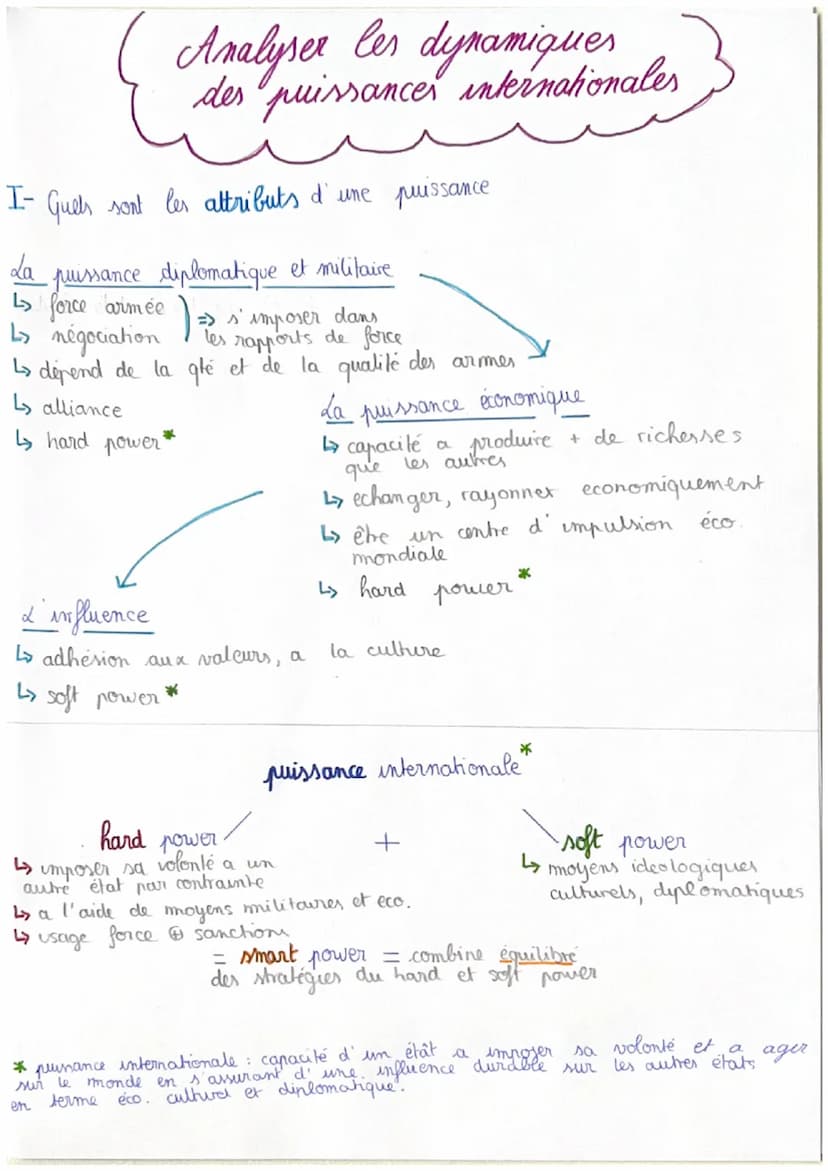 Analyser les dynamiques
des puissances internationales
I- Quels sont les attributs d'une puissance
La puissance diplomatique et militaire
↳ force armée
↳ négociation
=> s'imposer dans
les rapports de force
↳ dépend de la qté et de la qualité des armes
↳ alliance
↳ hard power*
La puissance économique
↳ capacité a produire + de richesses
que les autres
↳ echanger, rayonner economiquement
↳ être un centre d'impulsion éco.
mondiale
↳ hard power*
L'influence
↳ adhésion aux valeurs, a la culture
↳ soft power*
puissance internationale*
hard power
↳ imposer sa volonté a un
autre état par contrainte
↳ a l'aide de moyens militaires et eco.
↳ usage force ⊕ sanctions
+
soft power
↳ moyens ideologiques
culturels, diplomatiques
= smart power = combine équilibré
des stratégies du hard et soft power
* puissance internationale : capacité d'un étât a imposer sa volonté et a agir
sur le monde en s'assurant d'une influence durable sur les autres états
en terme éco. culturel et diplomatique.